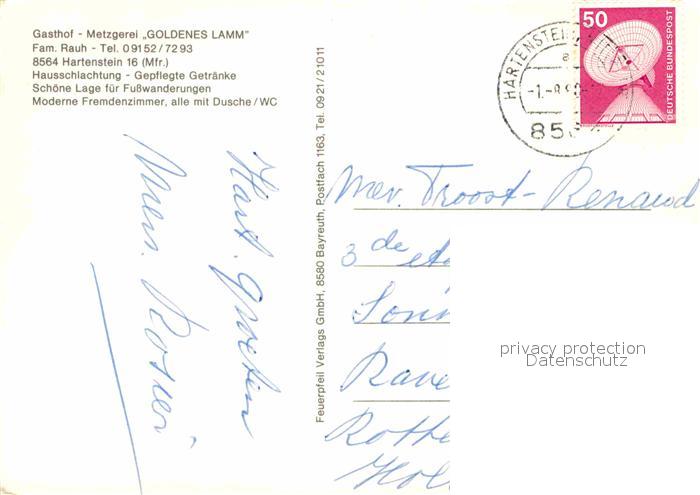 Gasthof - Metzgerei „GOLDENES LAMM"
Fam. Rauh - Tel. 09152/7293
8564 Hartenstein 16 (Mfr.)
Hausschlachtung - Gepflegte Getränke
Schöne Lage für Fußwanderungen
Moderne Fremdenzimmer, alle mit Dusche/WC
Hart. groeten
Feuerpfeil Verlags GmbH, 8580 Bayreuth, Postfach 1163, Tel. 0921/21011
HARTENSTEIN
a
50
DEUTSCHE BUNDESPOST
Mev. Troost-Renaud
3de
Rotte
Hol
privacy protection
Datenschutz